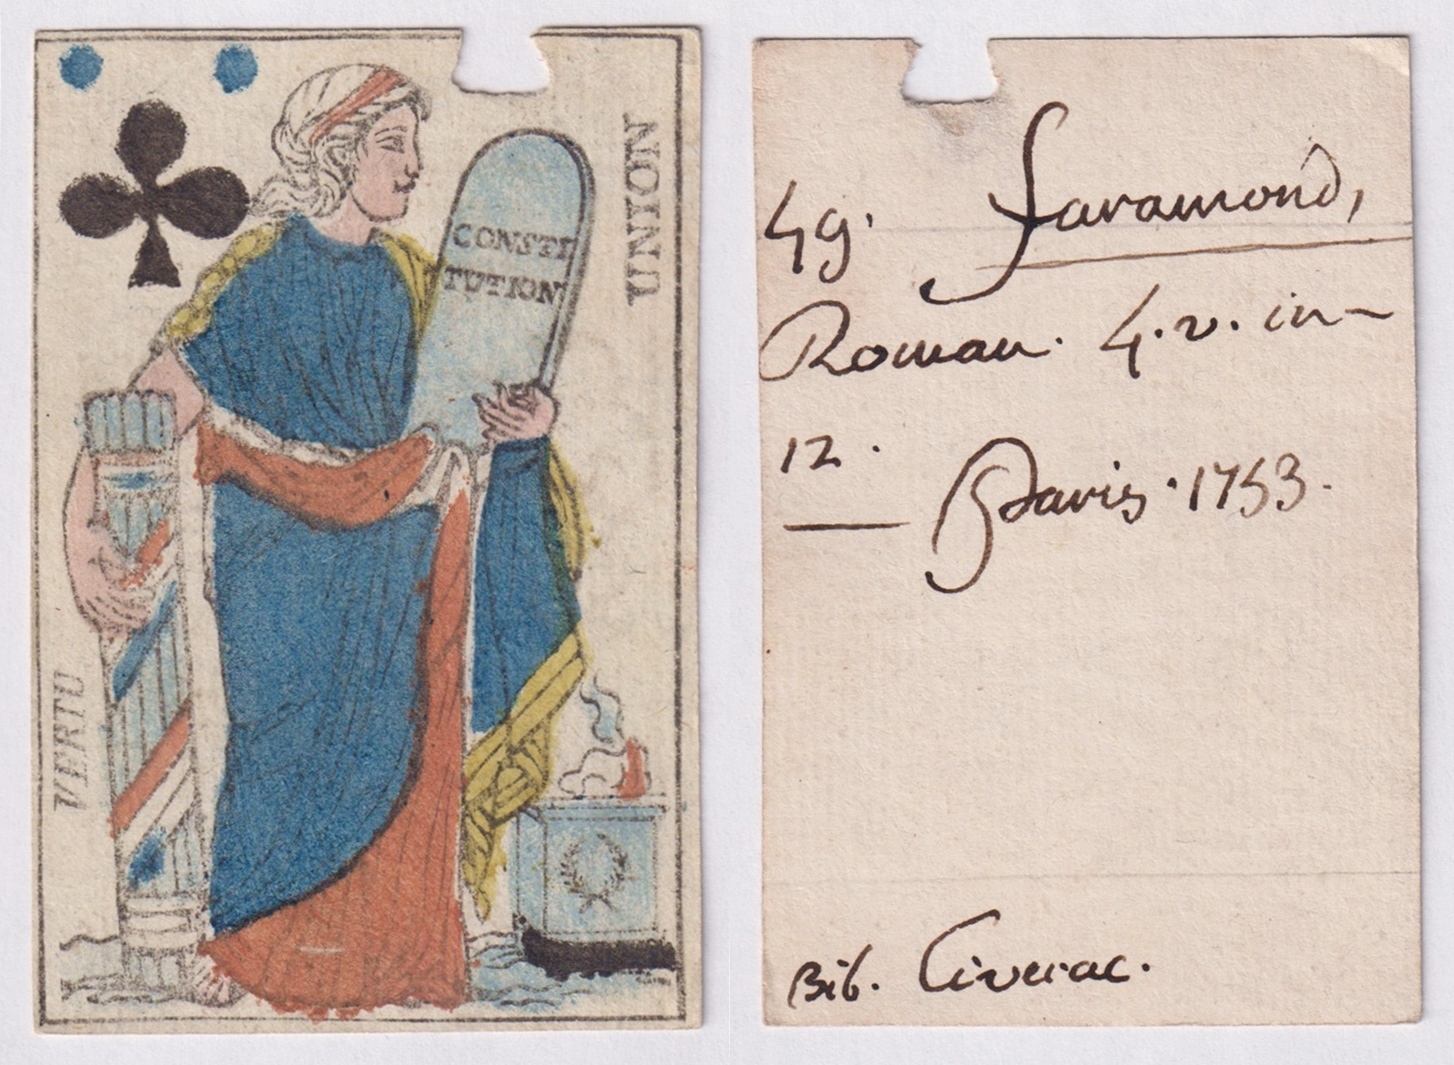 UNION
CONSTI
TUTION
VERTU
49. Faramond,
Roman. 4. v. in-
12. Paris. 1753.
Bib. Civrac.